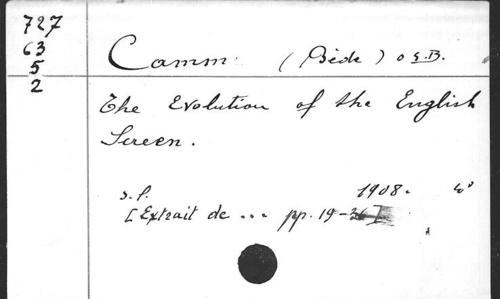 727
63
5
2
Camm (Bède) O S.B.
The Evolution of the English
Screen.
s.l. 1908.
[Extrait de ... pp. 19-36]